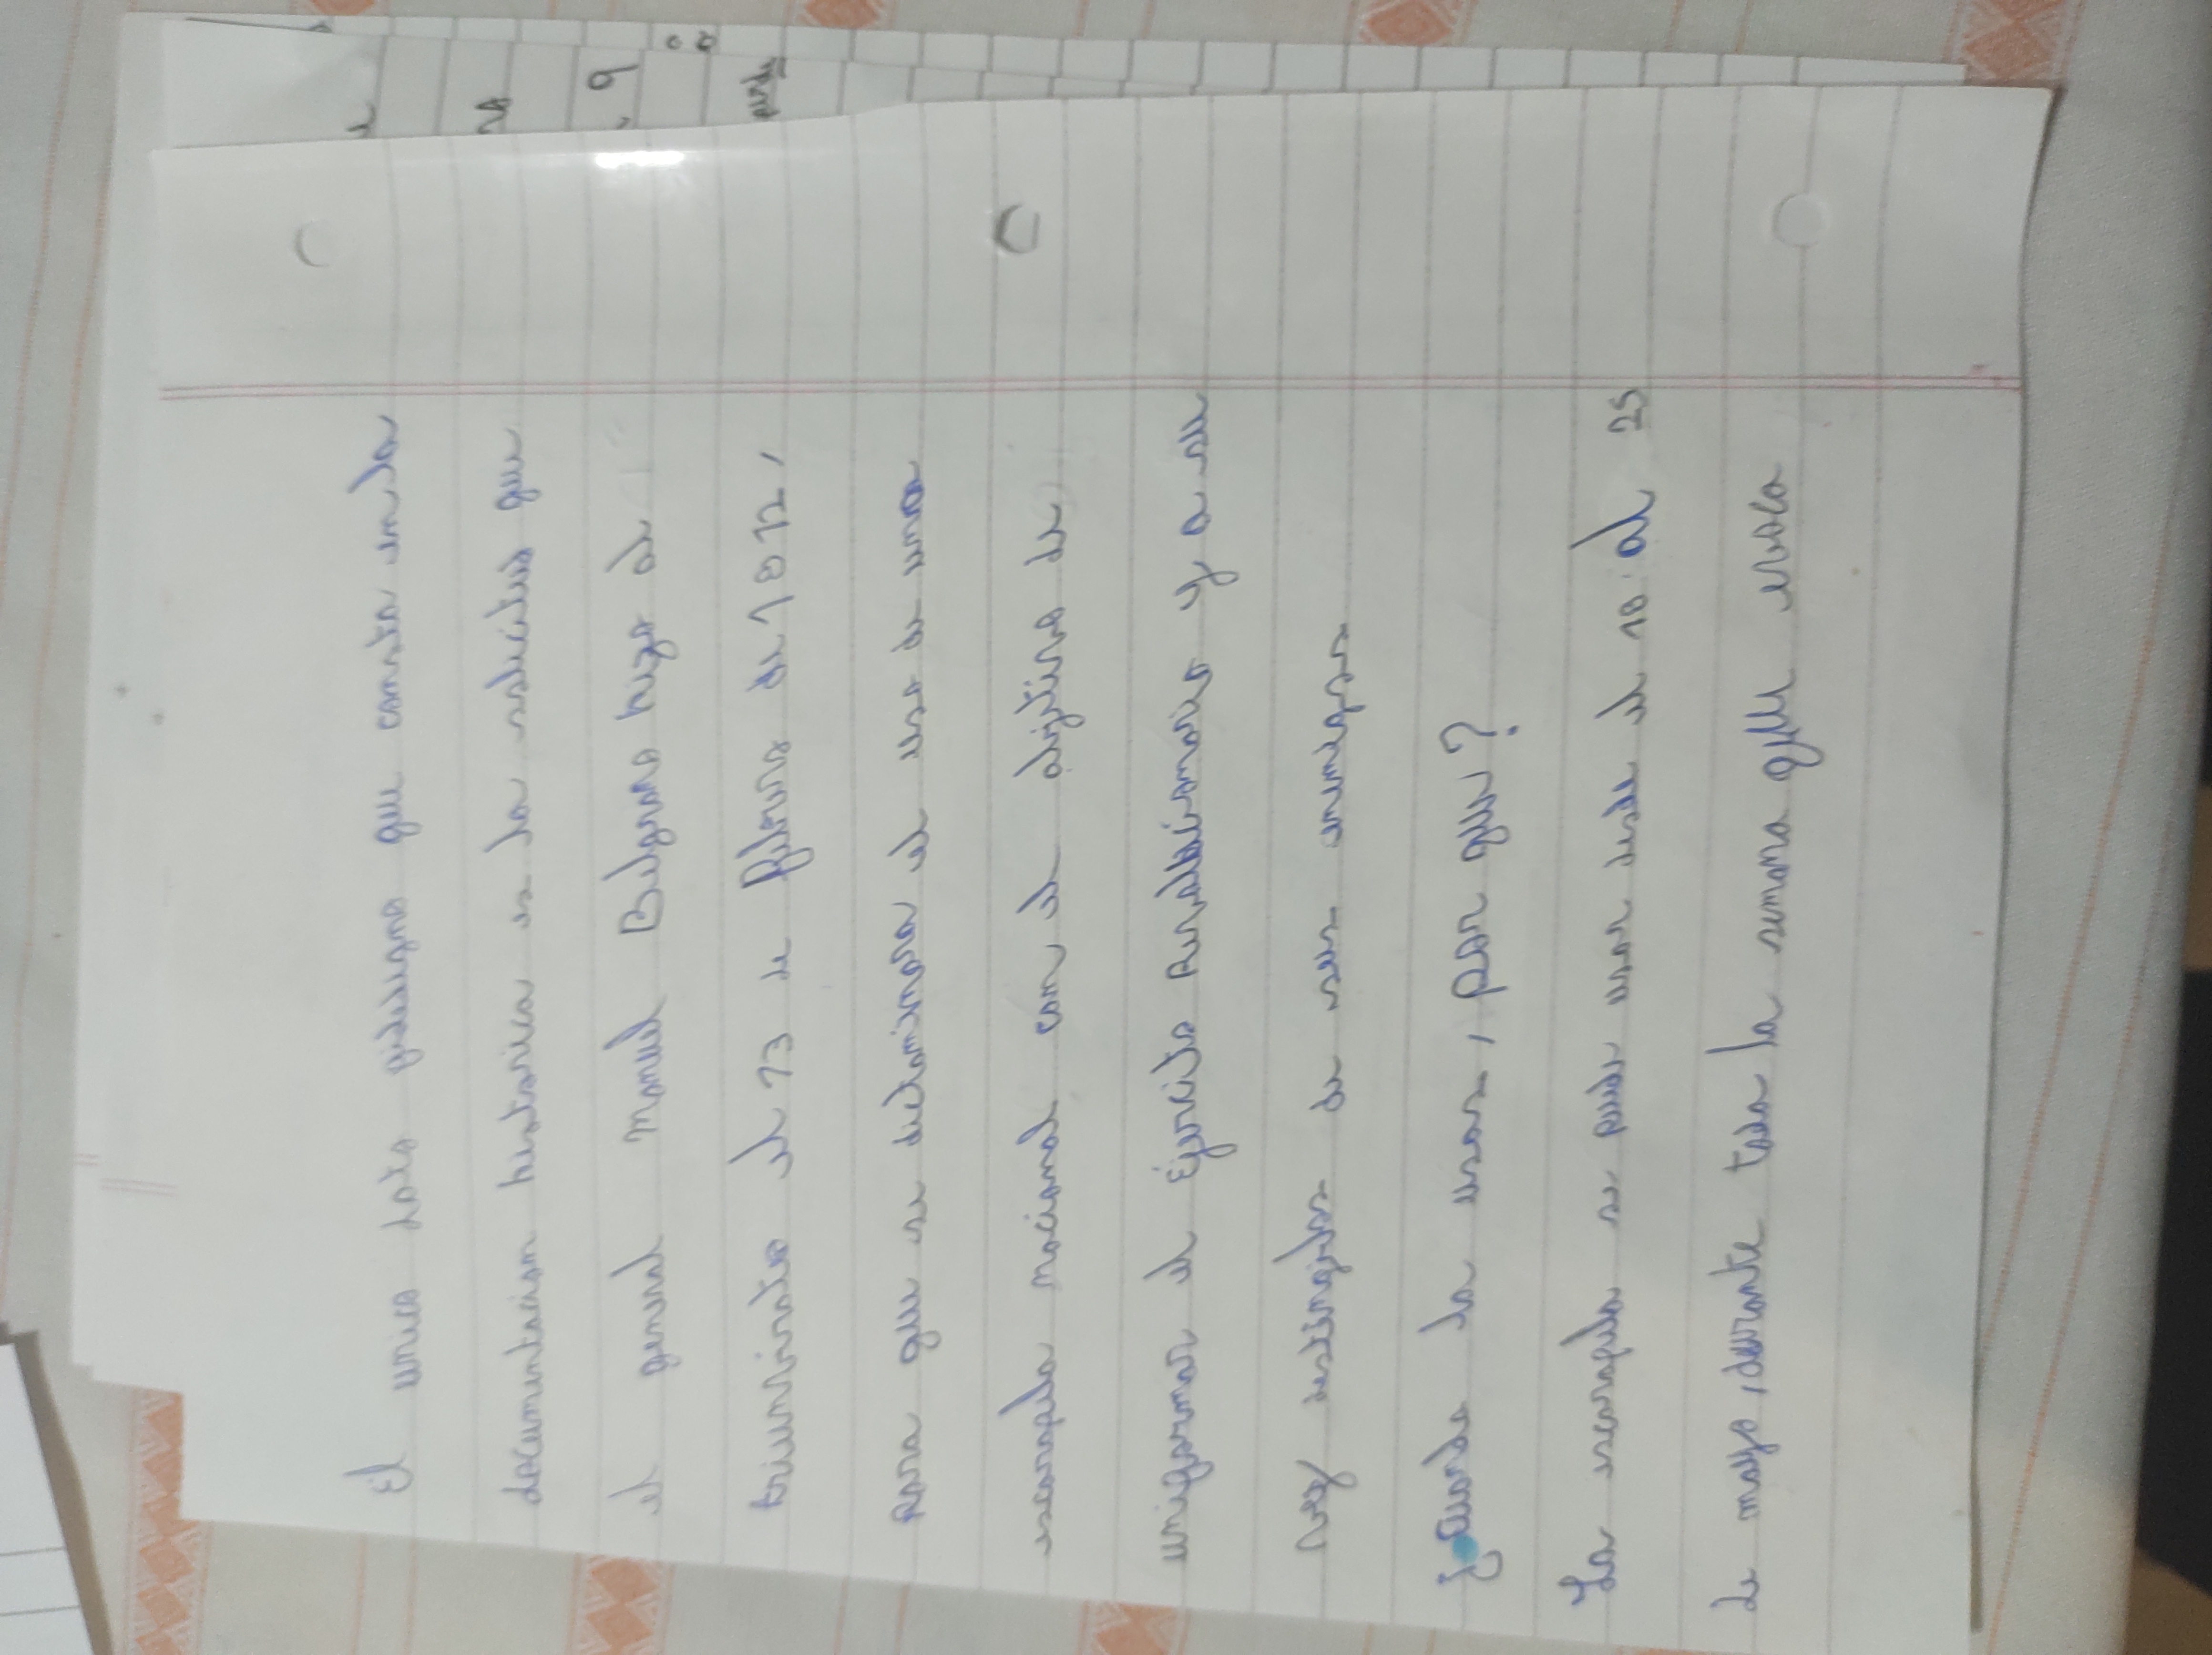 El unico dato fidedigno que consta en la
documentacion historica es la solicitud que
el general Manuel Belgrano hizo al
triunvirato el 13 de febrero de 1812,
para que se determinara el uso de una
escarapela nacional con el objetivo de
uniformar el Ejercito Revolucionario y a su
vez distinguirlos de sus enemigos
¿Cuando la usas, por que?
La escarapela se puede usar desde el 18 al 25
de mayo, durante toda la semana que evoca